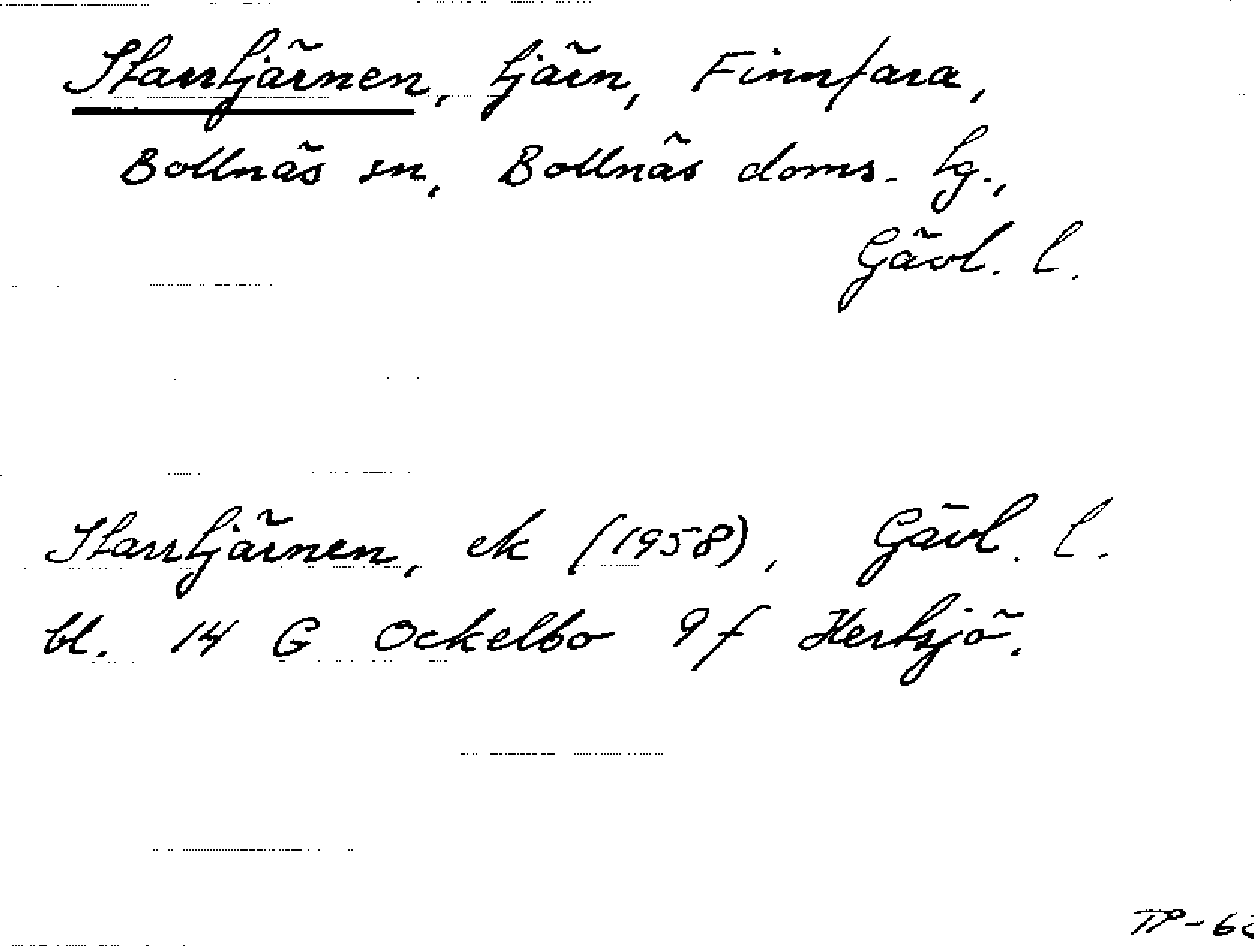 Starrtjärnen, tjärn, Finnfara,
Bollnäs sn, Bollnäs doms. tg.,
Gävl. l.
Starrtjärnen, ek (1958), Gävl. l.
bl. 14 G Ockelbo 9 f Hertsjö.